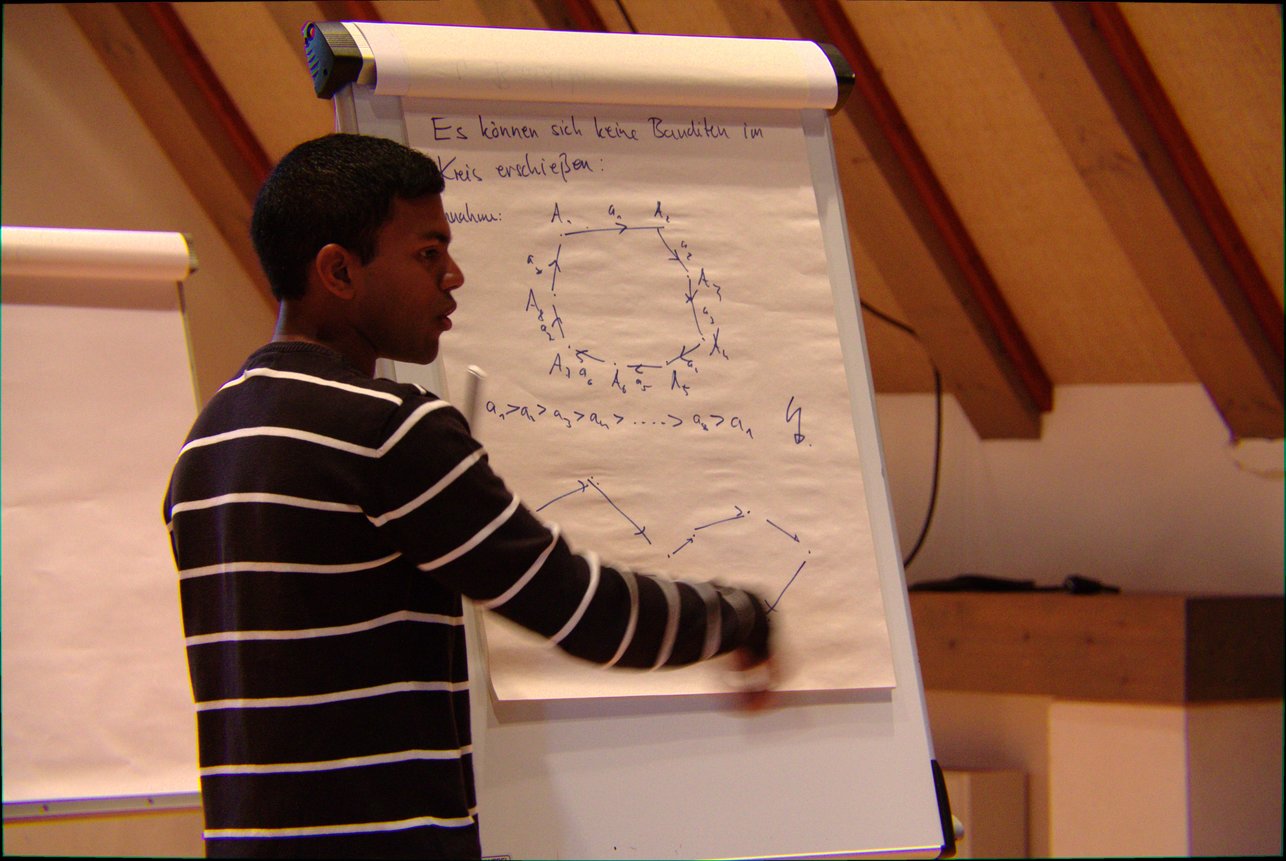 Es können sich keine Banditen im
Kreis erschießen:
nnahme:
A₁ a₁ A₂
a₈ a₂
A₃
A₈ a₃
A₄
A₇ a₆ A₆ a₅ A₅ a₄
a₁>a₂>a₃>a₄>.....>a₈>a₁